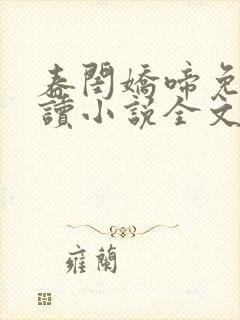 春閨嬌啼免
讀小說全文
雍蘭